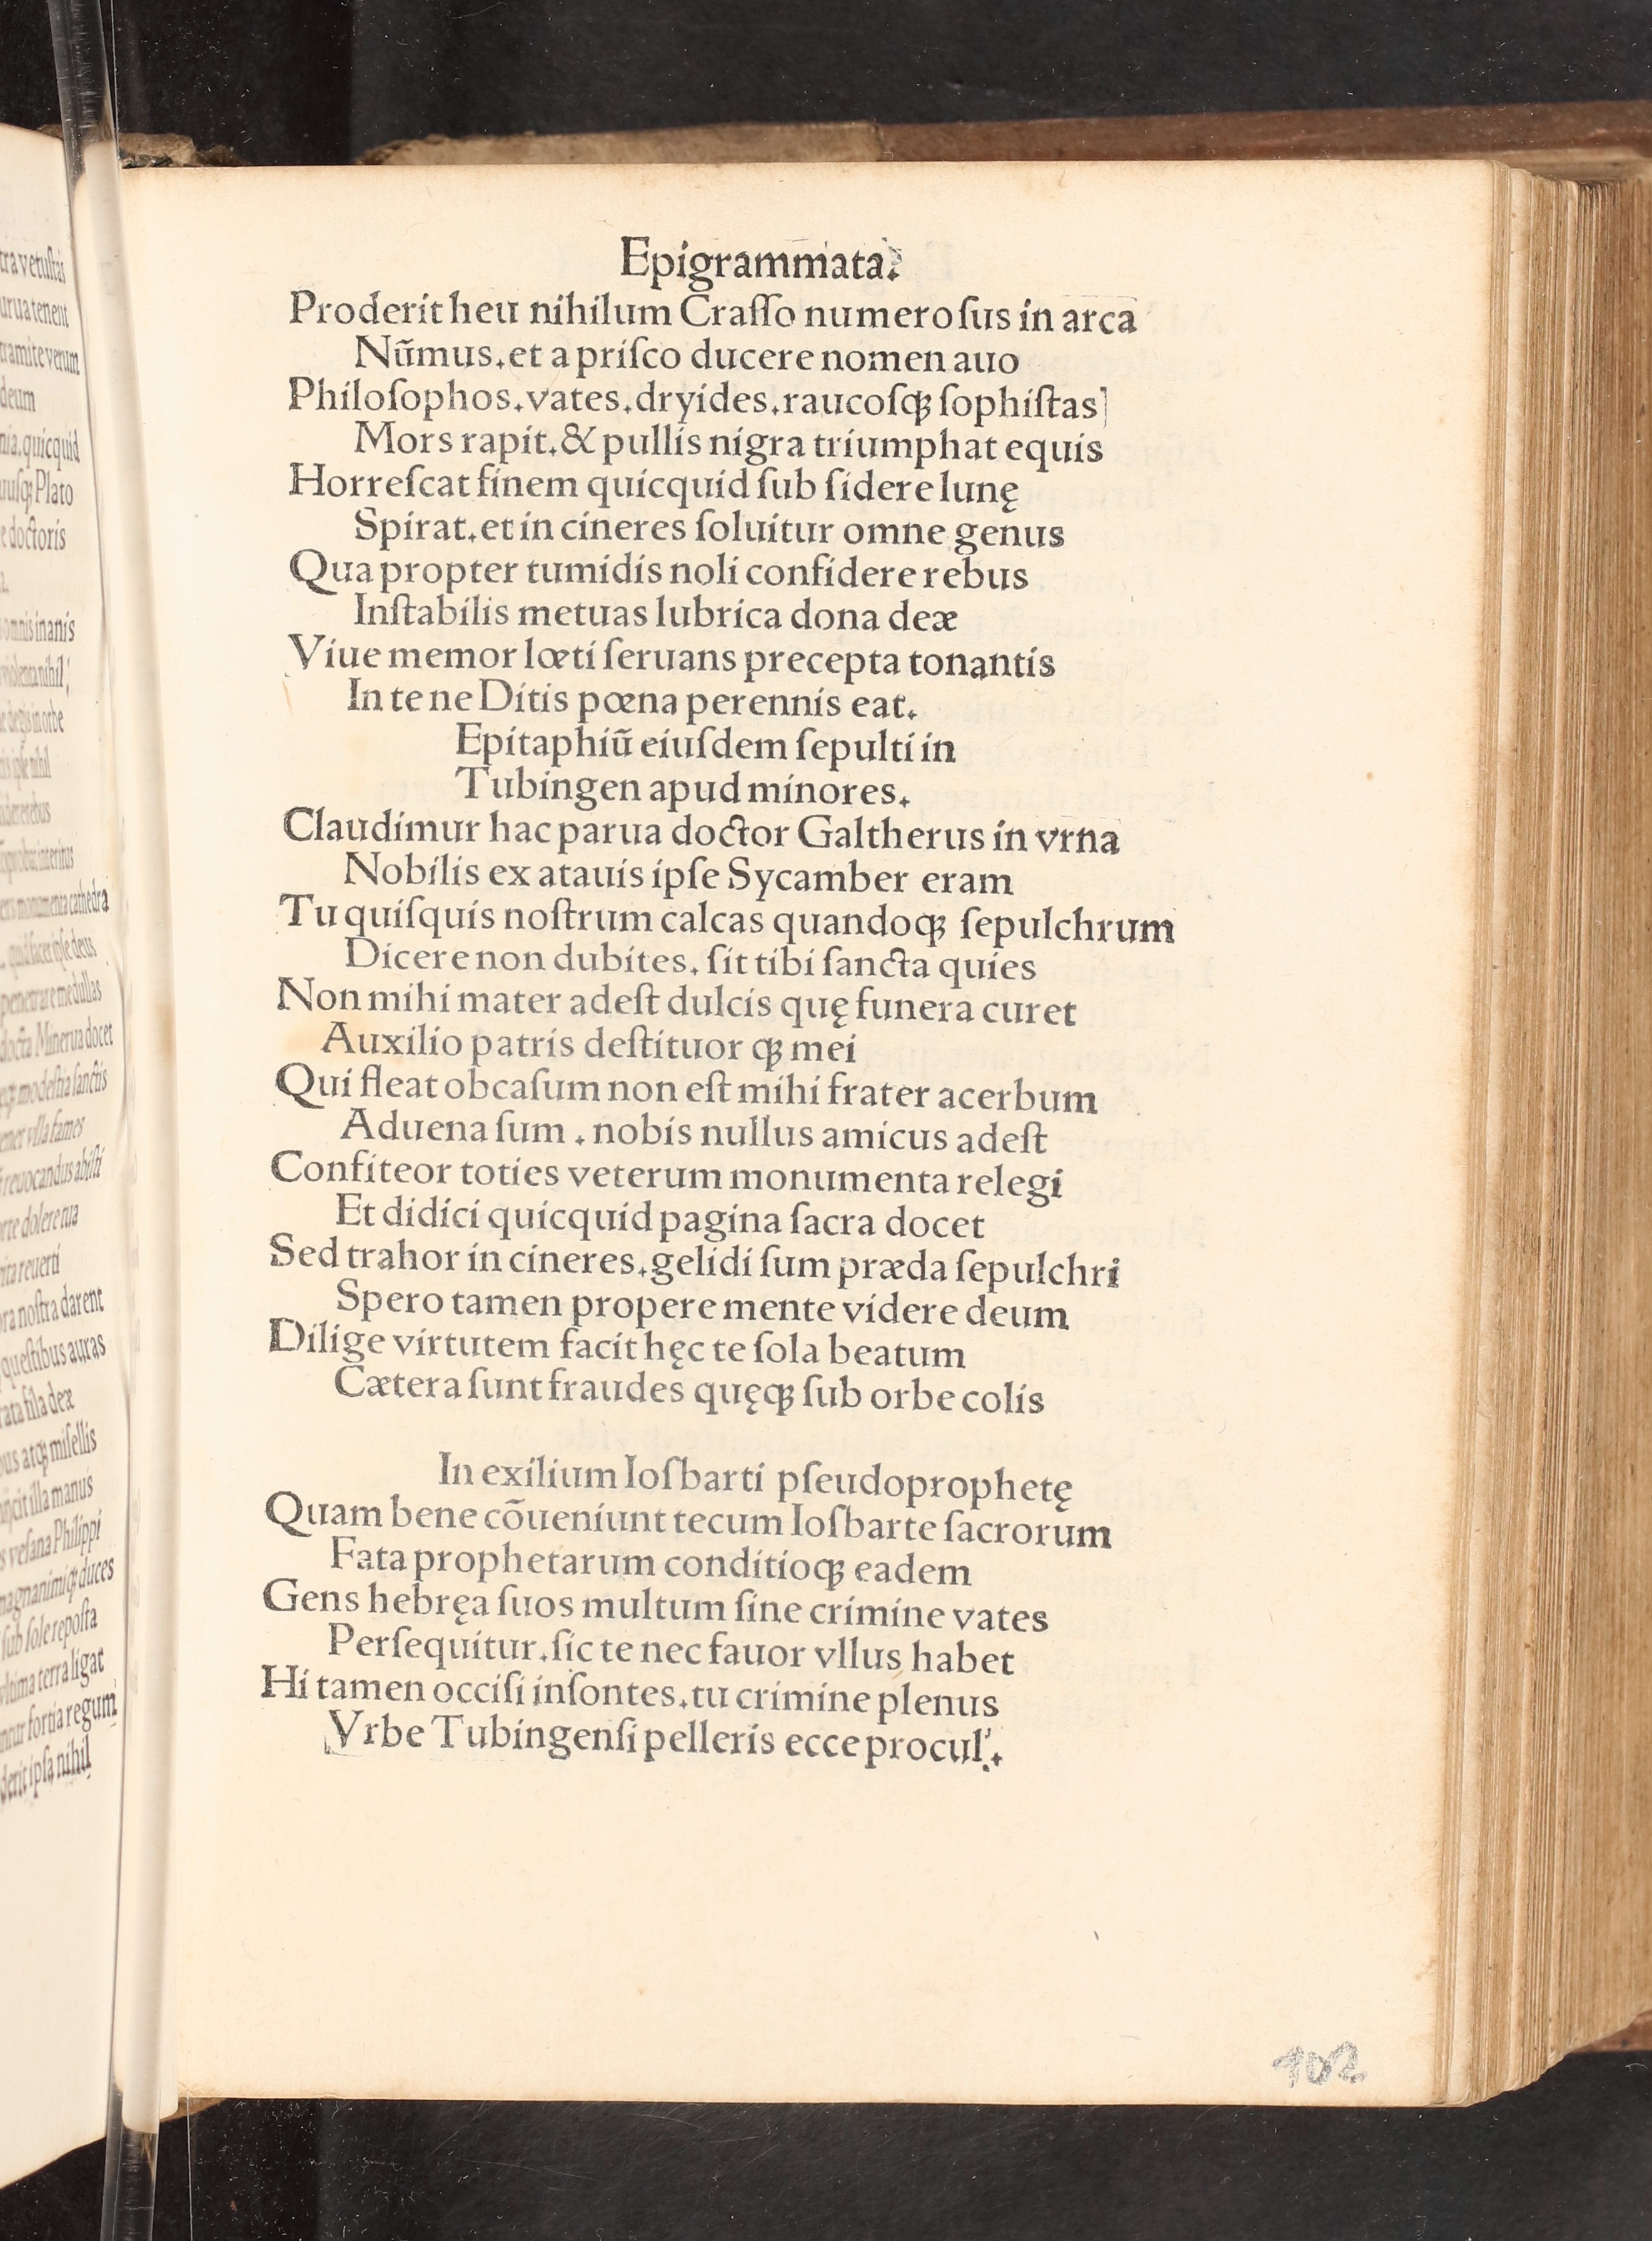 Epigrammata.
Proderit heu nihilum Craſſo numeroſus in arca
Nūmus.et a priſco ducere nomen auo
Philoſophos.vates.dryides.raucoſqꝫ ſophiſtas
Mors rapit.& pullis nigra triumphat equis
Horreſcat finem quicquid ſub ſidere lunę
Spirat.et in cineres ſoluitur omne genus
Quapropter tumidis noli confidere rebus
Inſtabilis metuas lubrica dona deæ
Viue memor lœti ſeruans precepta tonantis
In te ne Ditis pœna perennis eat.
Epitaphiū eiuſdem ſepulti in
Tubingen apud minores.
Claudimur hac parua doctor Galtherus in vrna
Nobilis ex atauis ipſe Sycamber eram
Tu quiſquis noſtrum calcas quandoqꝫ ſepulchrum
Dicere non dubites. ſit tibi ſancta quies
Non mihi mater adeſt dulcis quę funera curet
Auxilio patris deſtituor qꝫ mei
Qui fleat ob caſum non eſt mihi frater acerbum
Aduena ſum . nobis nullus amicus adeſt
Confiteor toties veterum monumenta relegi
Et didici quicquid pagina ſacra docet
Sed trahor in cineres.gelidi ſum præda ſepulchri
Spero tamen propere mente videre deum
Dilige virtutem facit hęc te ſola beatum
Cætera ſunt fraudes quęqꝫ ſub orbe colis
In exilium Ioſbarti pſeudoprophetę
Quam bene cōueniunt tecum Ioſbarte ſacrorum
Fata prophetarum conditioqꝫ eadem
Gens hebręa ſuos multum ſine crimine vates
Perſequitur.ſic te nec fauor vllus habet
Hi tamen occiſi inſontes.tu crimine plenus
Vrbe Tubingenſi pelleris ecce procul.
102